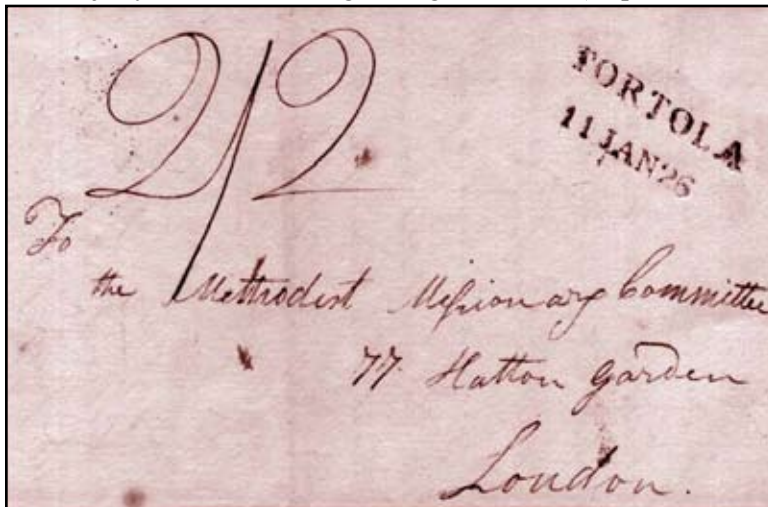 2/2
TORTOLA
11 JAN 26
To
the Methodist Missionary Committee
77 Hatton Garden
London.